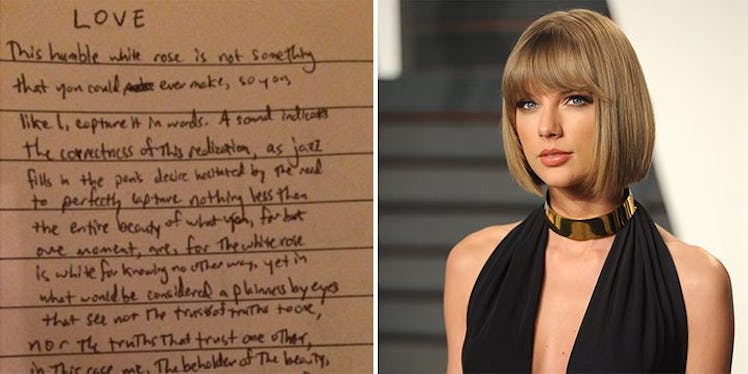 LOVE
This humble white rose is not something
that you could ever make, so you,
like I, capture it in words. A sound indicates
the correctness of this realization, as jazz
fills in the pen's desire hesitated by the need
to perfectly capture nothing less than
the entire beauty of what you, for but
one moment, are, for the white rose
is white for knowing no other way, yet in
what would be considered a plainness by eyes
that see not the trust of truths to one,
nor the truths that trust one other,
in this case me, The beholder of the beauty,